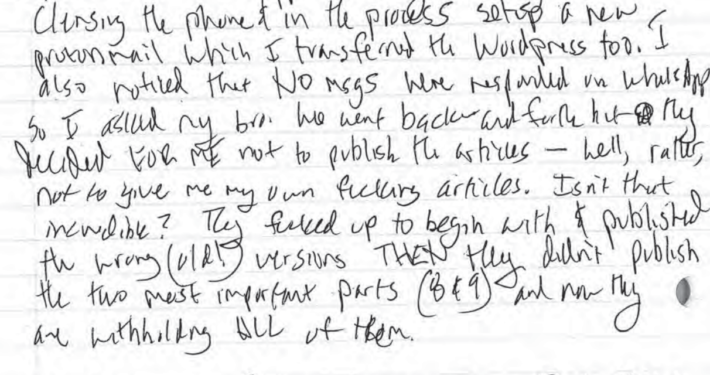 Cleansing the phone & in the process setup a new
protonmail which I transferred the Wordpress too. I
also noticed that NO msgs were responded on WhatsApp
so I asked my bro. We went back and forth but they
decided FOR ME not to publish the articles — well, rather,
not to give me my own fucking articles. Isn't that
incredible? They fucked up to begin with & published
the wrong (old!) versions THEN they didn't publish
the two most important parts (8 & 9) and now they
are withholding ALL of them.